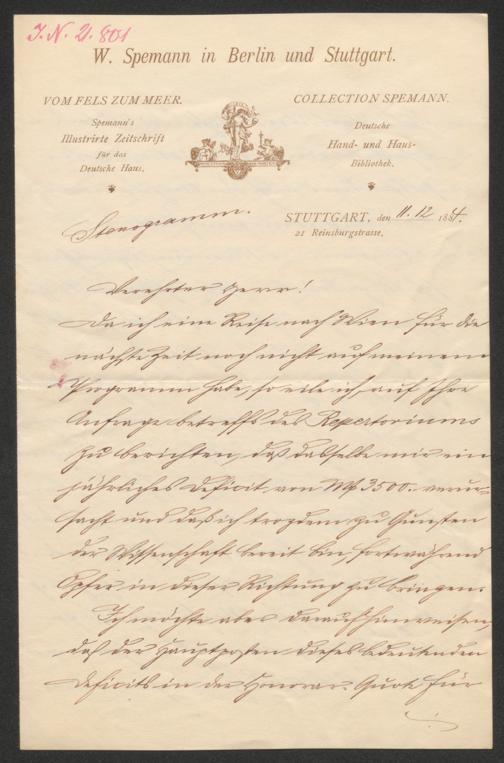 J. N. 2. 801
W. Spemann in Berlin und Stuttgart.
VOM FELS ZUM MEER.
Spemann's
Illustrirte Zeitschrift
für das
Deutsche Haus.
COLLECTION SPEMANN.
Deutsche
Hand- und Haus-
Bibliothek.
Stenogramm.
STUTTGART, den 11. 12 1884.
21 Reinsburgstrasse.
Verehrter Herr!
Da ich eine Reise nach Wien für die
nächste Zeit noch nicht auf meinem
Programm habe, so eile ich, auf Ihre
Anfrage betreffs des Repertoriums
zu berichten, daß dasselbe mir ein
jährliches Deficit von M 3500.- verur-
sacht und daß ich trotzdem zu Gunsten
der Wissenschaft bereit bin, fortwährend
Opfer in dieser Richtung zu bringen.
Ich möchte aber darauf hinweisen,
daß der Hauptposten dieses bedeutenden
Deficits in der Honorar-Quote für